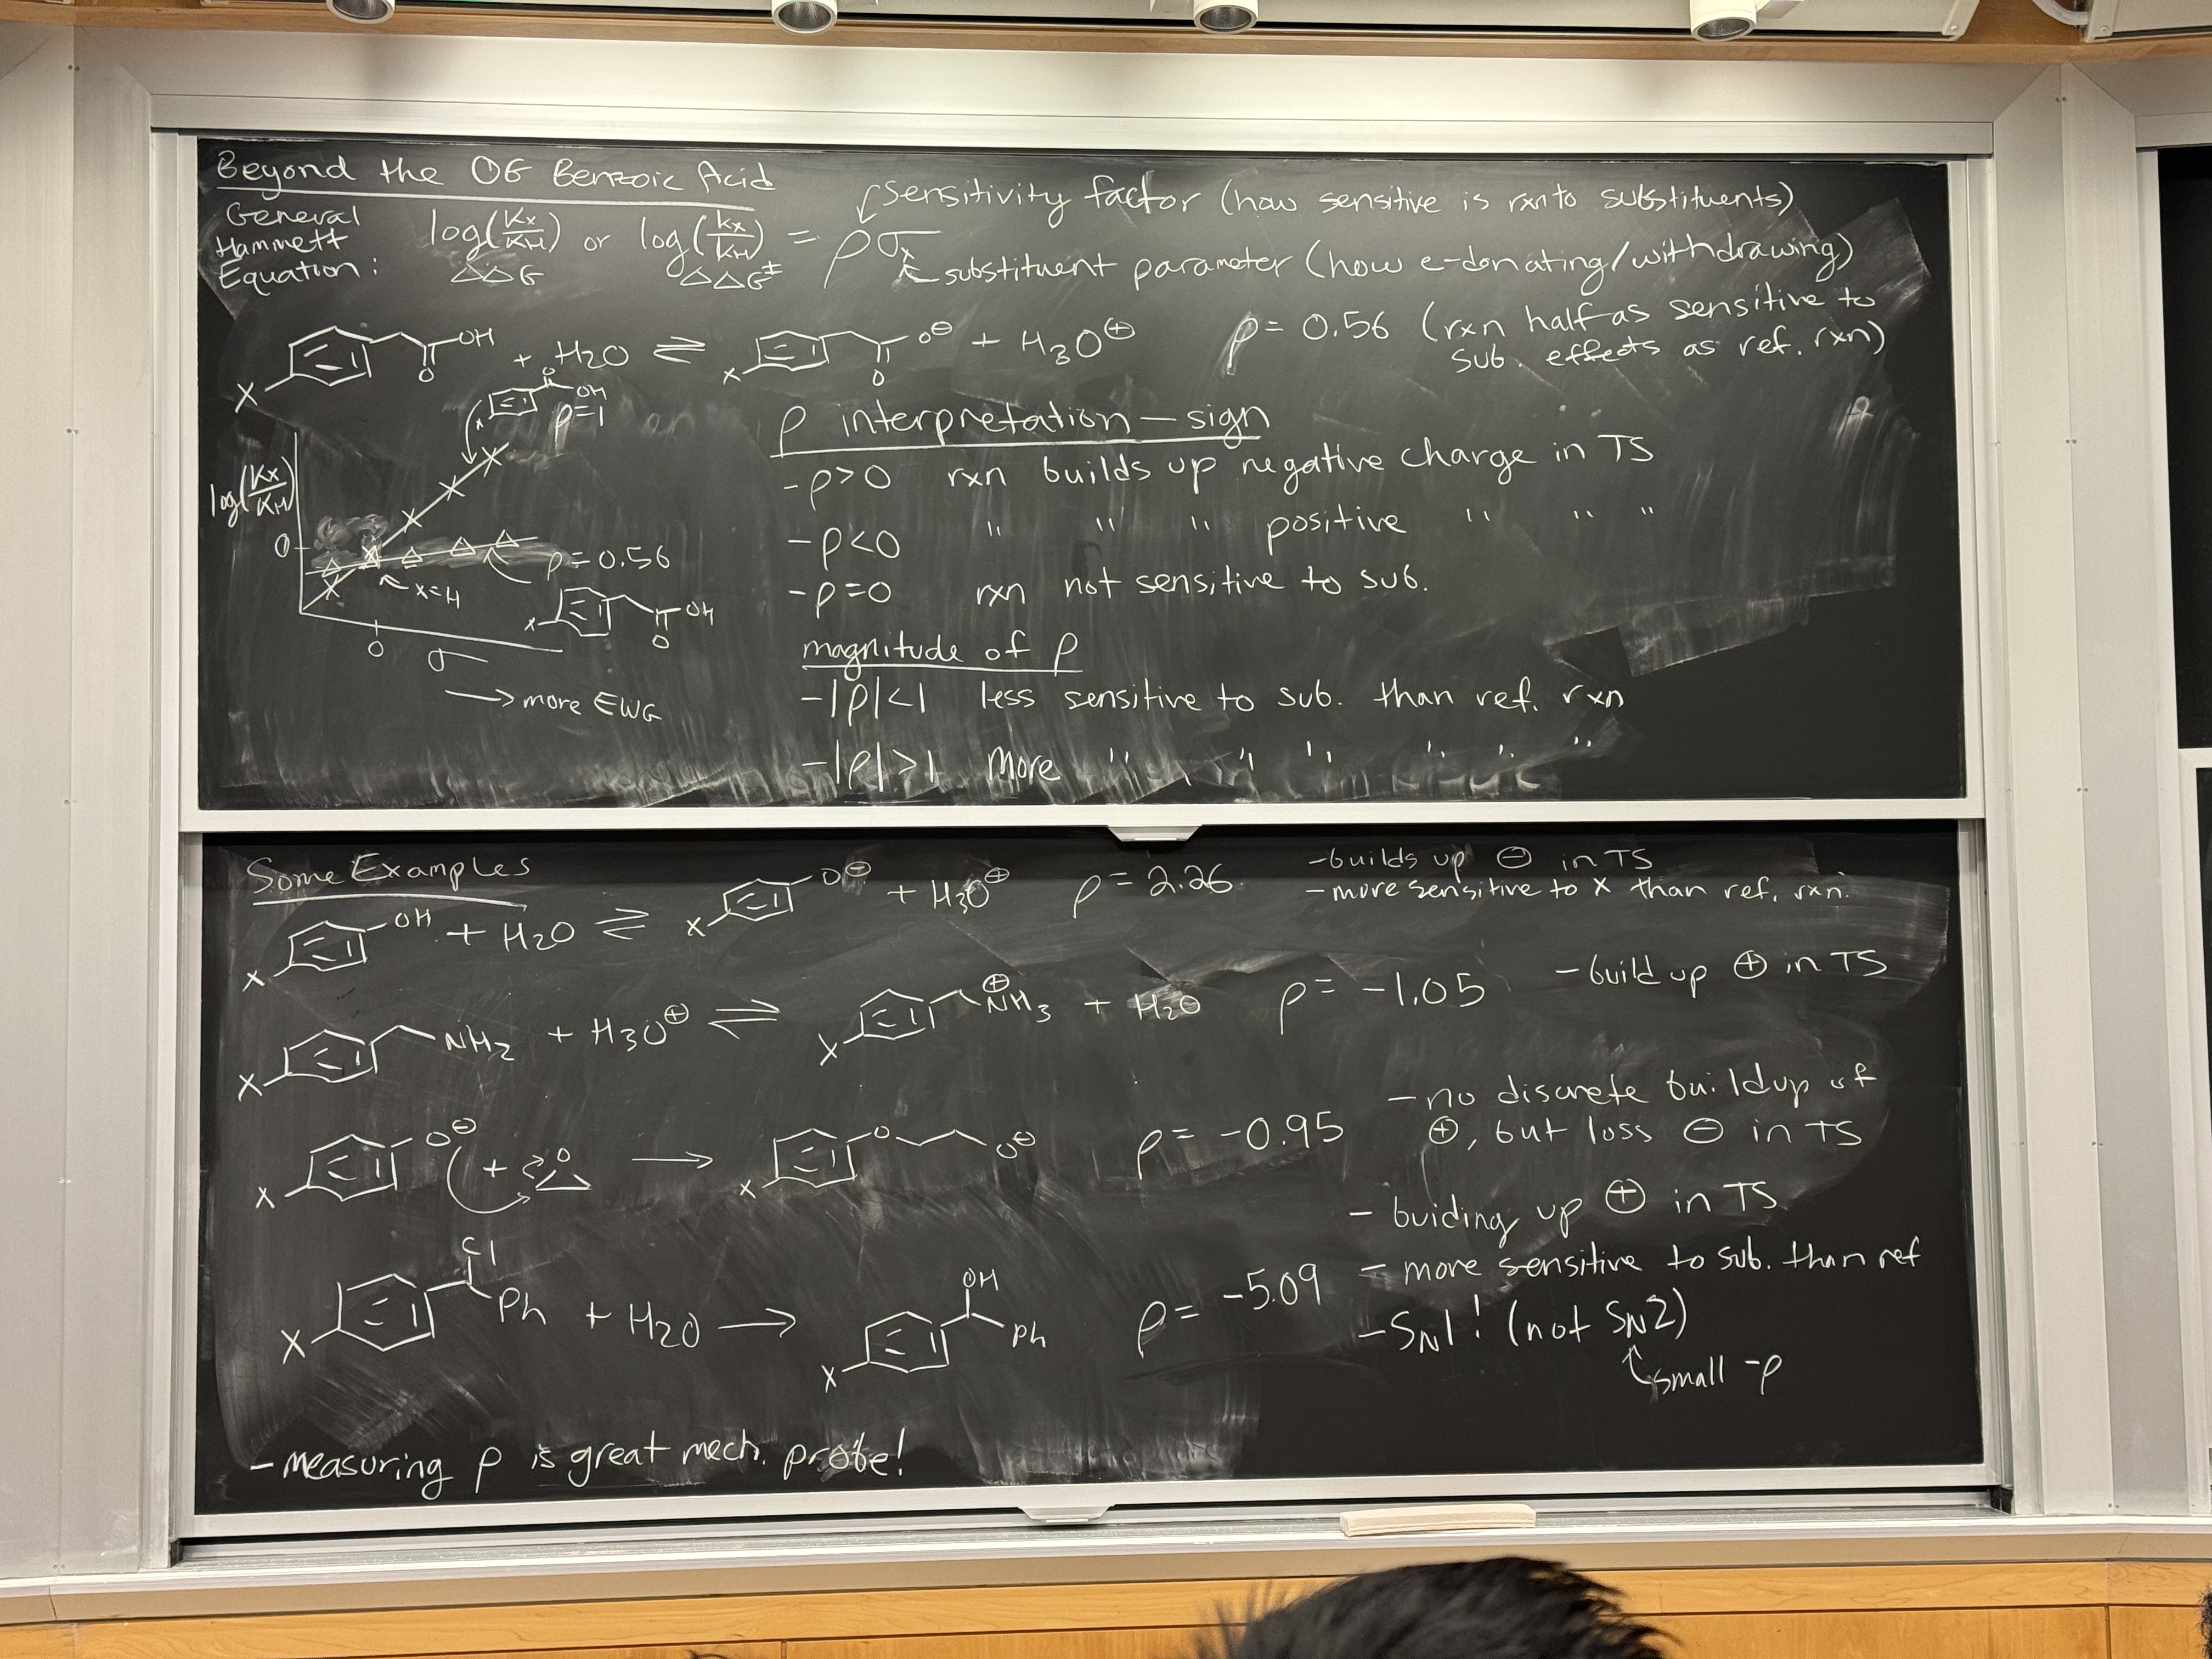 Beyond the OG Benzoic Acid
General Hammett Equation: log(Kx/KH) or log(kx/kH) = ρσx
ΔΔG ΔΔG‡
sensitivity factor (how sensitive is rxn to substituents)
substituent parameter (how e-donating/withdrawing)
X OH O + H2O ⇌ X O⊖ O + H3O⊕
ρ = 0.56 (rxn half as sensitive to
sub. effects as ref. rxn)
x O OH
ρ=1
log(Kx/KH)
0
ρ=0.56
x=H
x OH O
0
σ
→ more EWG
ρ interpretation — sign
-ρ>0 rxn builds up negative charge in TS
-ρ<0 " " " positive " " "
-ρ=0 rxn not sensitive to sub.
magnitude of ρ
-|ρ|<1 less sensitive to sub. than ref. rxn
-|ρ|>1 more " " " " " "
Some Examples
X OH + H2O ⇌ X O⊖ + H3O⊕ ρ = 2.26
-builds up ⊖ in TS
-more sensitive to X than ref. rxn.
X NH2 + H3O⊕ ⇌ X ⊕NH3 + H2O ρ = -1.05
-build up ⊕ in TS
X O⊖ + O → X O O⊖ ρ = -0.95
-no discrete buildup of
⊕, but loss ⊖ in TS
X Cl Ph + H2O → X OH Ph ρ = -5.09
- buiding up ⊕ in TS
- more sensitive to sub. than ref
-SN1! (not SN2)
small -ρ
-measuring ρ is great mech. probe!